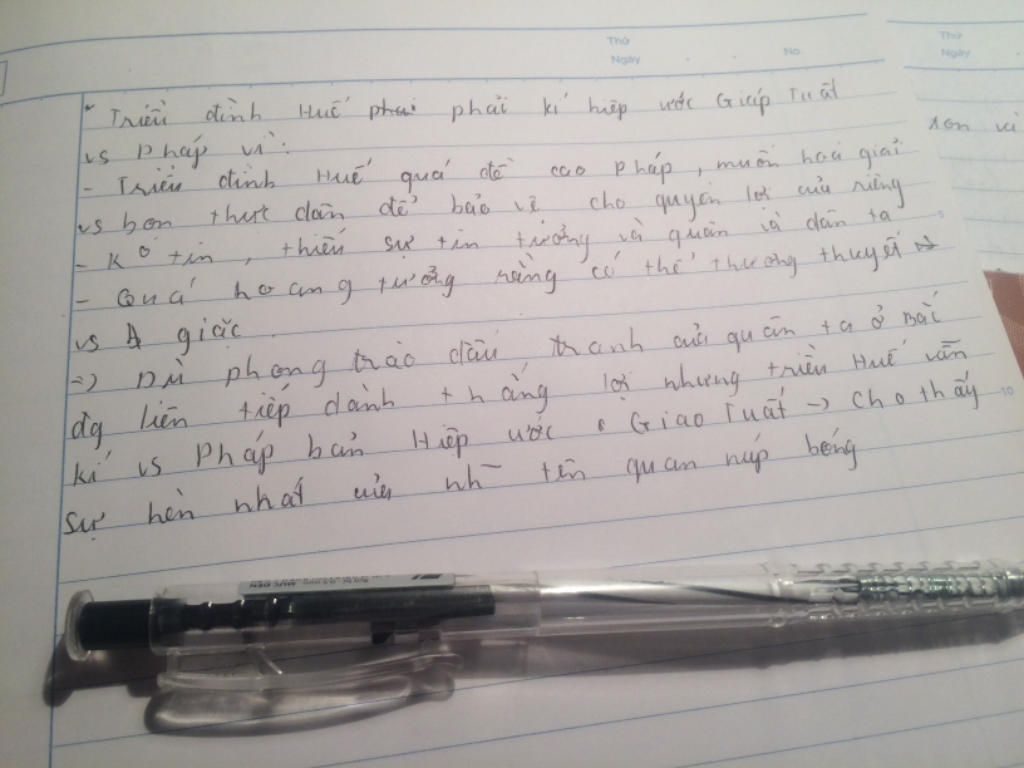 Thứ
Ngày
No.
Thứ
Ngày
* Triều đình Huế phải kí hiệp ước Giáp Tuất
vs Pháp vì:
- Triều đình Huế quá đề cao Pháp, muốn hoà giải
vs bọn thực dân để bảo vệ cho quyền lợi của riêng
- Ko tin, thiếu sự tin tưởng và quân và dân ta
- Quá hoang tưởng rằng có thể thương thuyết
vs giặc
=) Dù phong trào đấu tranh của quân ta ở Bắc
đg liên tiếp dành thắng lợi nhưng triều Huế vẫn
kí vs Pháp bản Hiệp ước Giao Tuất -> cho thấy
sự hèn nhát của nh~ tên quan núp bóng
5
10